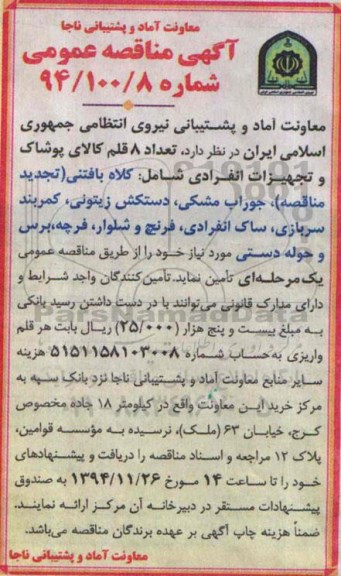 معاونت آماد و پشتیبانی ناجا
آگهی مناقصه عمومی
شماره ۹۴/۱۰۰/۸
معاونت آماد و پشـتیبانی نیروی انتظامی جمهوری
اسلامی ایران در نظر دارد، تعداد ۸ قلم کالای پوشاک
و تجهیـزات انفـرادی شـامل: کلاه بافتنی(تجدید
مناقصه)، جوراب مشکی، دستکش زیتونی، کمربند
سربازی، ساک انفرادی، فرنچ و شلوار، فرچه،برس
و حوله دستـی مورد نیاز خود را از طریق مناقصه عمومی
یک مرحله‌ای تأمین نماید.تأمین‌کنندگان واجد شـرایط و
دارای مدارک قانونی می‌توانند با در دست داشتن رسید بانکی
بـه مبلغ بیسـت و پنج هزار (۲۵/۰۰۰) ریـال بابت هر قلم
واریزی به‌حسـاب شـماره ۵۱۵۱۱۵۸۱۰۳۰۰۸ هزینه
سـایر منابع معاونت آماد و پشـتیبانی ناجا نزد بانک سـپه به
مرکز خرید این معاونت واقع در کیلومتر ۱۸ جاده مخصوص
کرج، خیابـان ۶۳ (ملـک)، نرسـیده به مؤسسـه قوامین،
پلاک ۱۲ مراجعه و اسـناد مناقصه را دریافت و پیشـنهادهای
خود را تا ساعت ۱۴ مورخ ۱۳۹۴/۱۱/۲۶ به صندوق
پیشـنهادات مسـتقر در دبیرخانه آن مرکز ارائـه نمایند.
ضمناً هزینه چاپ آگهی بر عهده برندگان مناقصه می‌باشد.
معاونت آماد و پشتیبانی ناجا
ParsNamadData